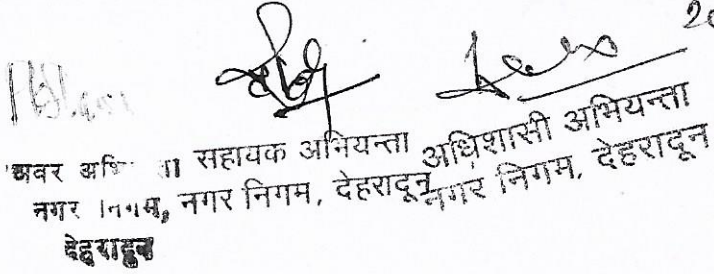 20
अवर अभि ता
नगर निगम,
देहरादून
सहायक अभियन्ता
नगर निगम, देहरादून
अधिशासी अभियन्ता
नगर निगम, देहरादून